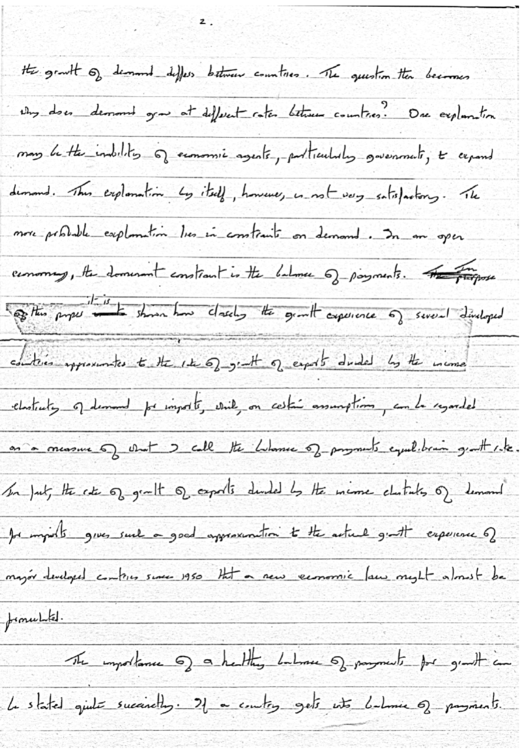 2.
the growth of demand differs between countries. The question then becomes
why does demand grow at different rates between countries? One explanation
may be the inability of economic agents, particularly governments, to expand
demand. This explanation by itself, however, is not very satisfactory. The
more probable explanation lies in constraints on demand. In an open
economy, the dominant constraint is the balance of payments. In
of this paper it is shown how closely the growth experience of several developed
countries approximates to the rate of growth of exports divided by the income
elasticity of demand for imports, which, on certain assumptions, can be regarded
as a measure of what I call the balance of payments equilibrium growth rate.
In fact, the rate of growth of exports divided by the income elasticity of demand
for imports gives such a good approximation to the actual growth experience of
major developed countries since 1950 that a new economic law might almost be
formulated.
The importance of a healthy balance of payments for growth can
be stated quite succinctly. If a country gets into balance of payments